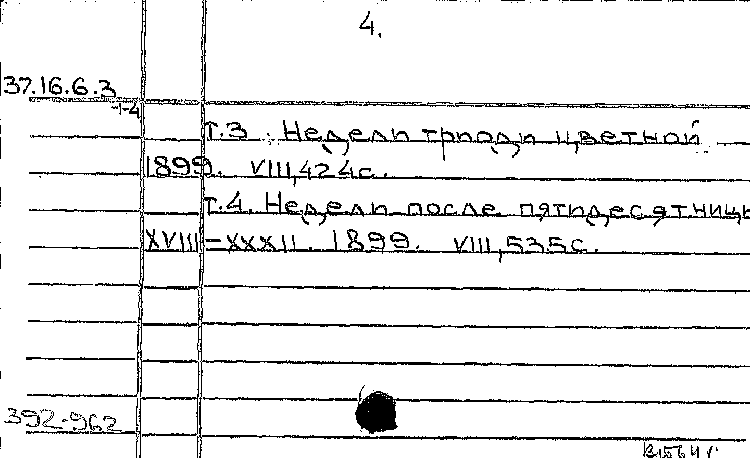 4.
37.16.6.3
-1-4
т.3. Недели триоди цветной
1899. VIII,424с.
т.4. Недели после пятидесятницы
XVIII-XXXII. 1899. VIII,535с.
392-962